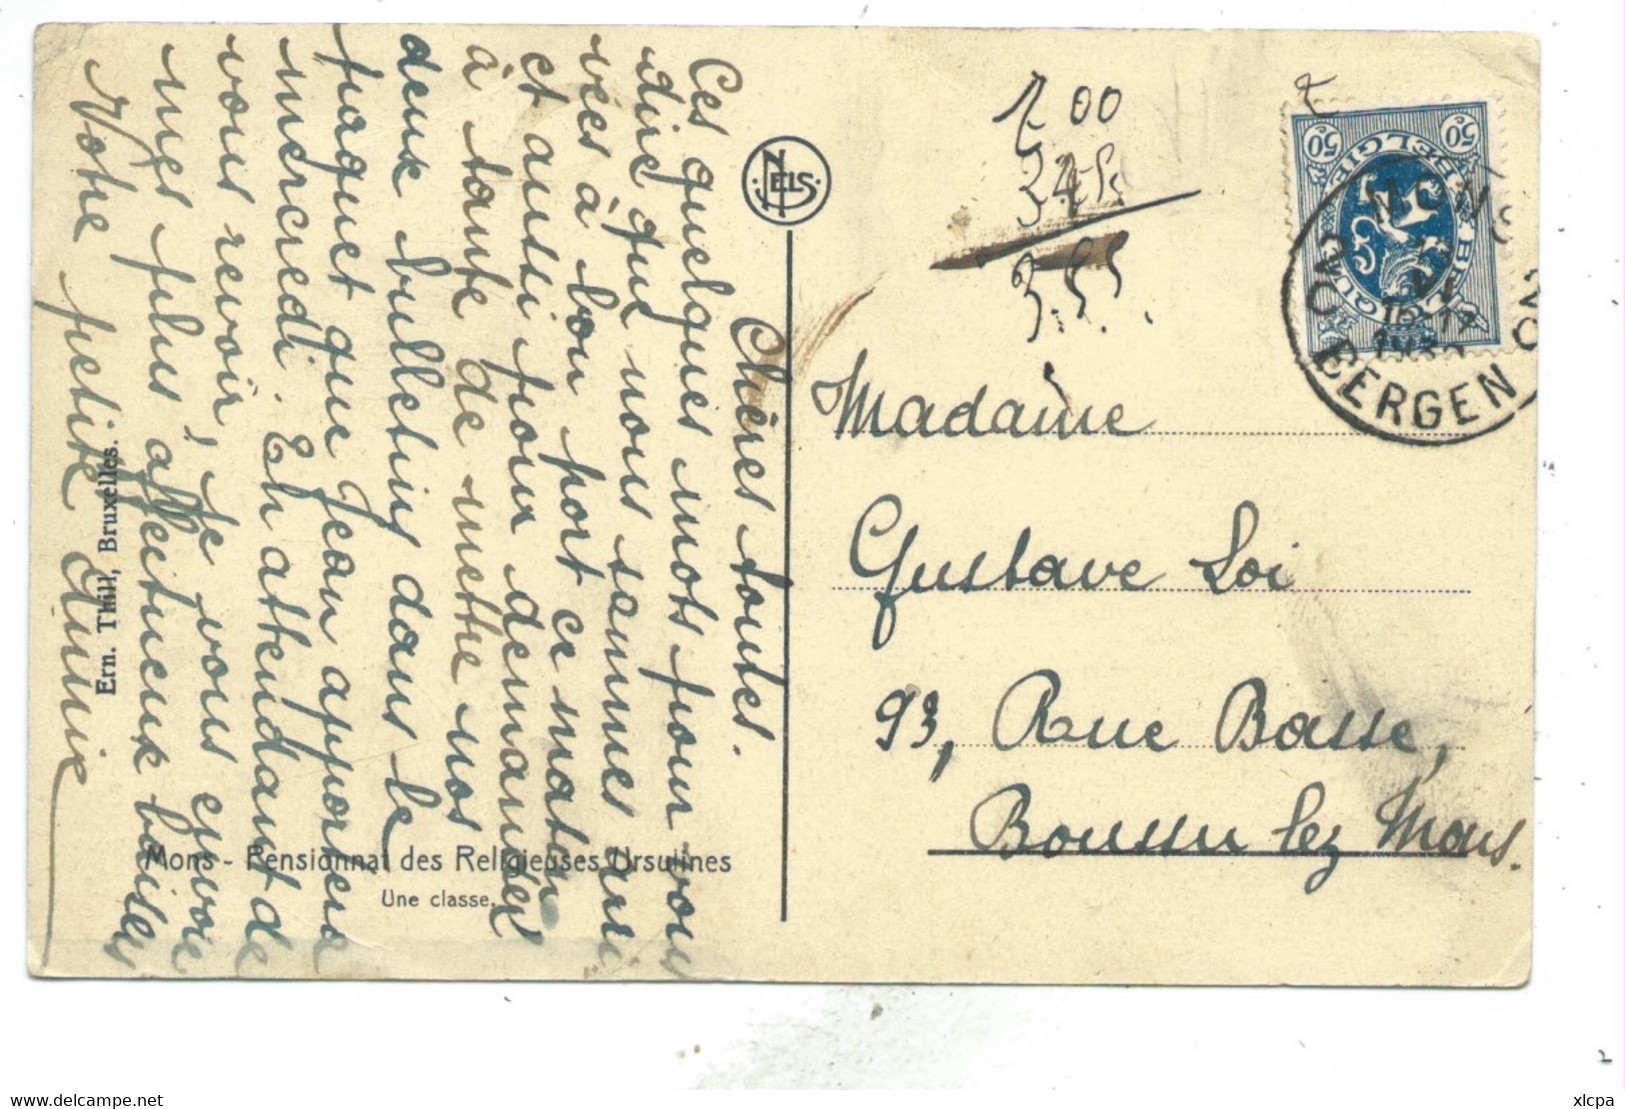 Chères toutes.
Ces quelques mots pour vous
dire que nous sommes arri
vées à bon port ce matin
et aussi pour demander
à tante de mettre nos
deux bulletins dans le
paquet que Jean apportera
mercredi. En attendant de
vous revoir, je vous envoie
mes plus affectueux baisers
Votre petite
Ern. Thill, Bruxelles.
Mons - Pensionnat des Religieuses Ursulines
Une classe.
NELS
00
3.55
50c
50c
BELGIE
BELGIQUE
MONS
16-17
BERGEN
Madame
Gustave Loi
93, Rue Basse,
Boussu lez Mons.
xlcpa